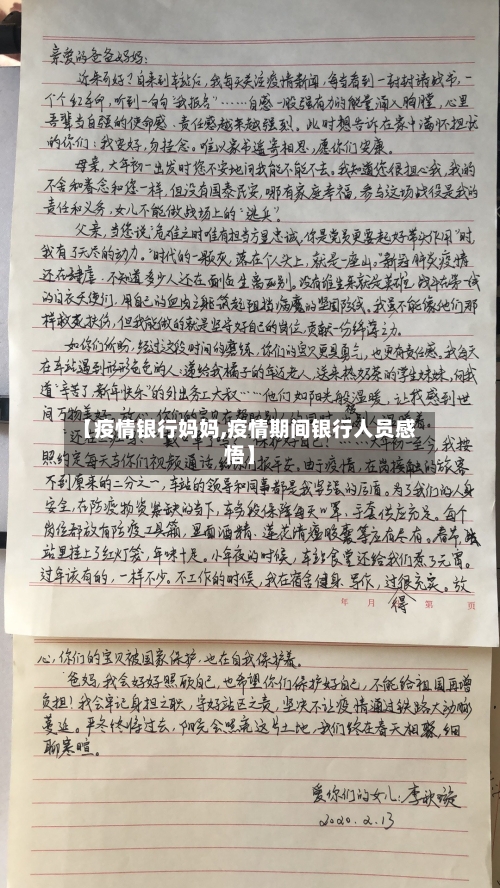 亲爱的爸爸妈妈:
近来可好?自来到车站后,我每天关注疫情新闻,每当看到一封封请战书,一
个个红手印,听到一句句“我报名”……自感一股强有力的能量涌入胸膛,心里
吾辈当自强的使命感、责任感越来越强烈。此时想告诉在家中满怀担忧
的你们:我安好,勿挂念。唯以家书遥寄相思,愿你们安康。
母亲,大年初一出发时您不安地问我能不能不去。我知道您很担心我,我的
不舍和眷恋和您一样,但没有国泰民安,哪有家庭幸福,参与这场战役是我的
责任和义务,女儿不能做战场上的“逃兵”。
父亲,当您说“危难之时唯有担当方显忠诚,你是党员更要起好带头作用”时,
我有了无尽的动力。“时代的一颗灰,落在个人头上,就是一座山。”新冠肺炎疫情
还在肆虐,不知道多少人还在面临生离死别。没有谁生来就是英雄,战斗在第一线
的白衣天使们,用自己的血肉之躯筑起阻挡病魔的坚固防线。我虽不能像他们那
样救死扶伤,但我能做的就是坚守好自己的岗位,贡献一份绵薄之力。
如你们所盼,经过这段时间的磨练,你们的宝贝更具勇气,也更有责任感。我每天
在车站遇到形形色色的人:递给我橘子的车迷老人、送来热奶茶的学生妹妹、向我
道“辛苦了,新年快乐”的外出务工大叔……他们如阳光般温暖,让我感到世
间万物美好。放心,你们的宝贝在帮助别人的同时,
【疫情银行妈妈,疫情期间银行人员感
悟】
大年初一至今,我按
照约定每天与你们视频通话,给你们报平安。由于疫情,在岗接触的旅客
不到原来的二分之一,车站的领导和同事都是我坚强的后盾。为了我们的人身
安全,在防疫物资紧缺的当下,车务段保障每天口罩、手套供应充足。每个
岗位都放有防疫工具箱,里面酒精、莲花清瘟胶囊等应有尽有。春节,我
站里挂上了红灯笼,年味十足。小年夜的时候,车站食堂还给我们煮了元宵。
过年该有的,一样不少。不工作的时候,我在宿舍健身、写作,过得很充实。放
年 月 第 页
心,你们的宝贝被国家保护,也在自我保护着。
爸妈,我会好好照顾自己,也希望你们保护好自己,不能给祖国再增
负担!我会牢记身担之职,守好站区之责,坚决不让疫情通过铁路大动脉
蔓延。严冬终将过去,阳光会照亮这片土地,我们终在春天相聚,细
聊寒暄。
爱你们的女儿:李欣璇
2020.2.13